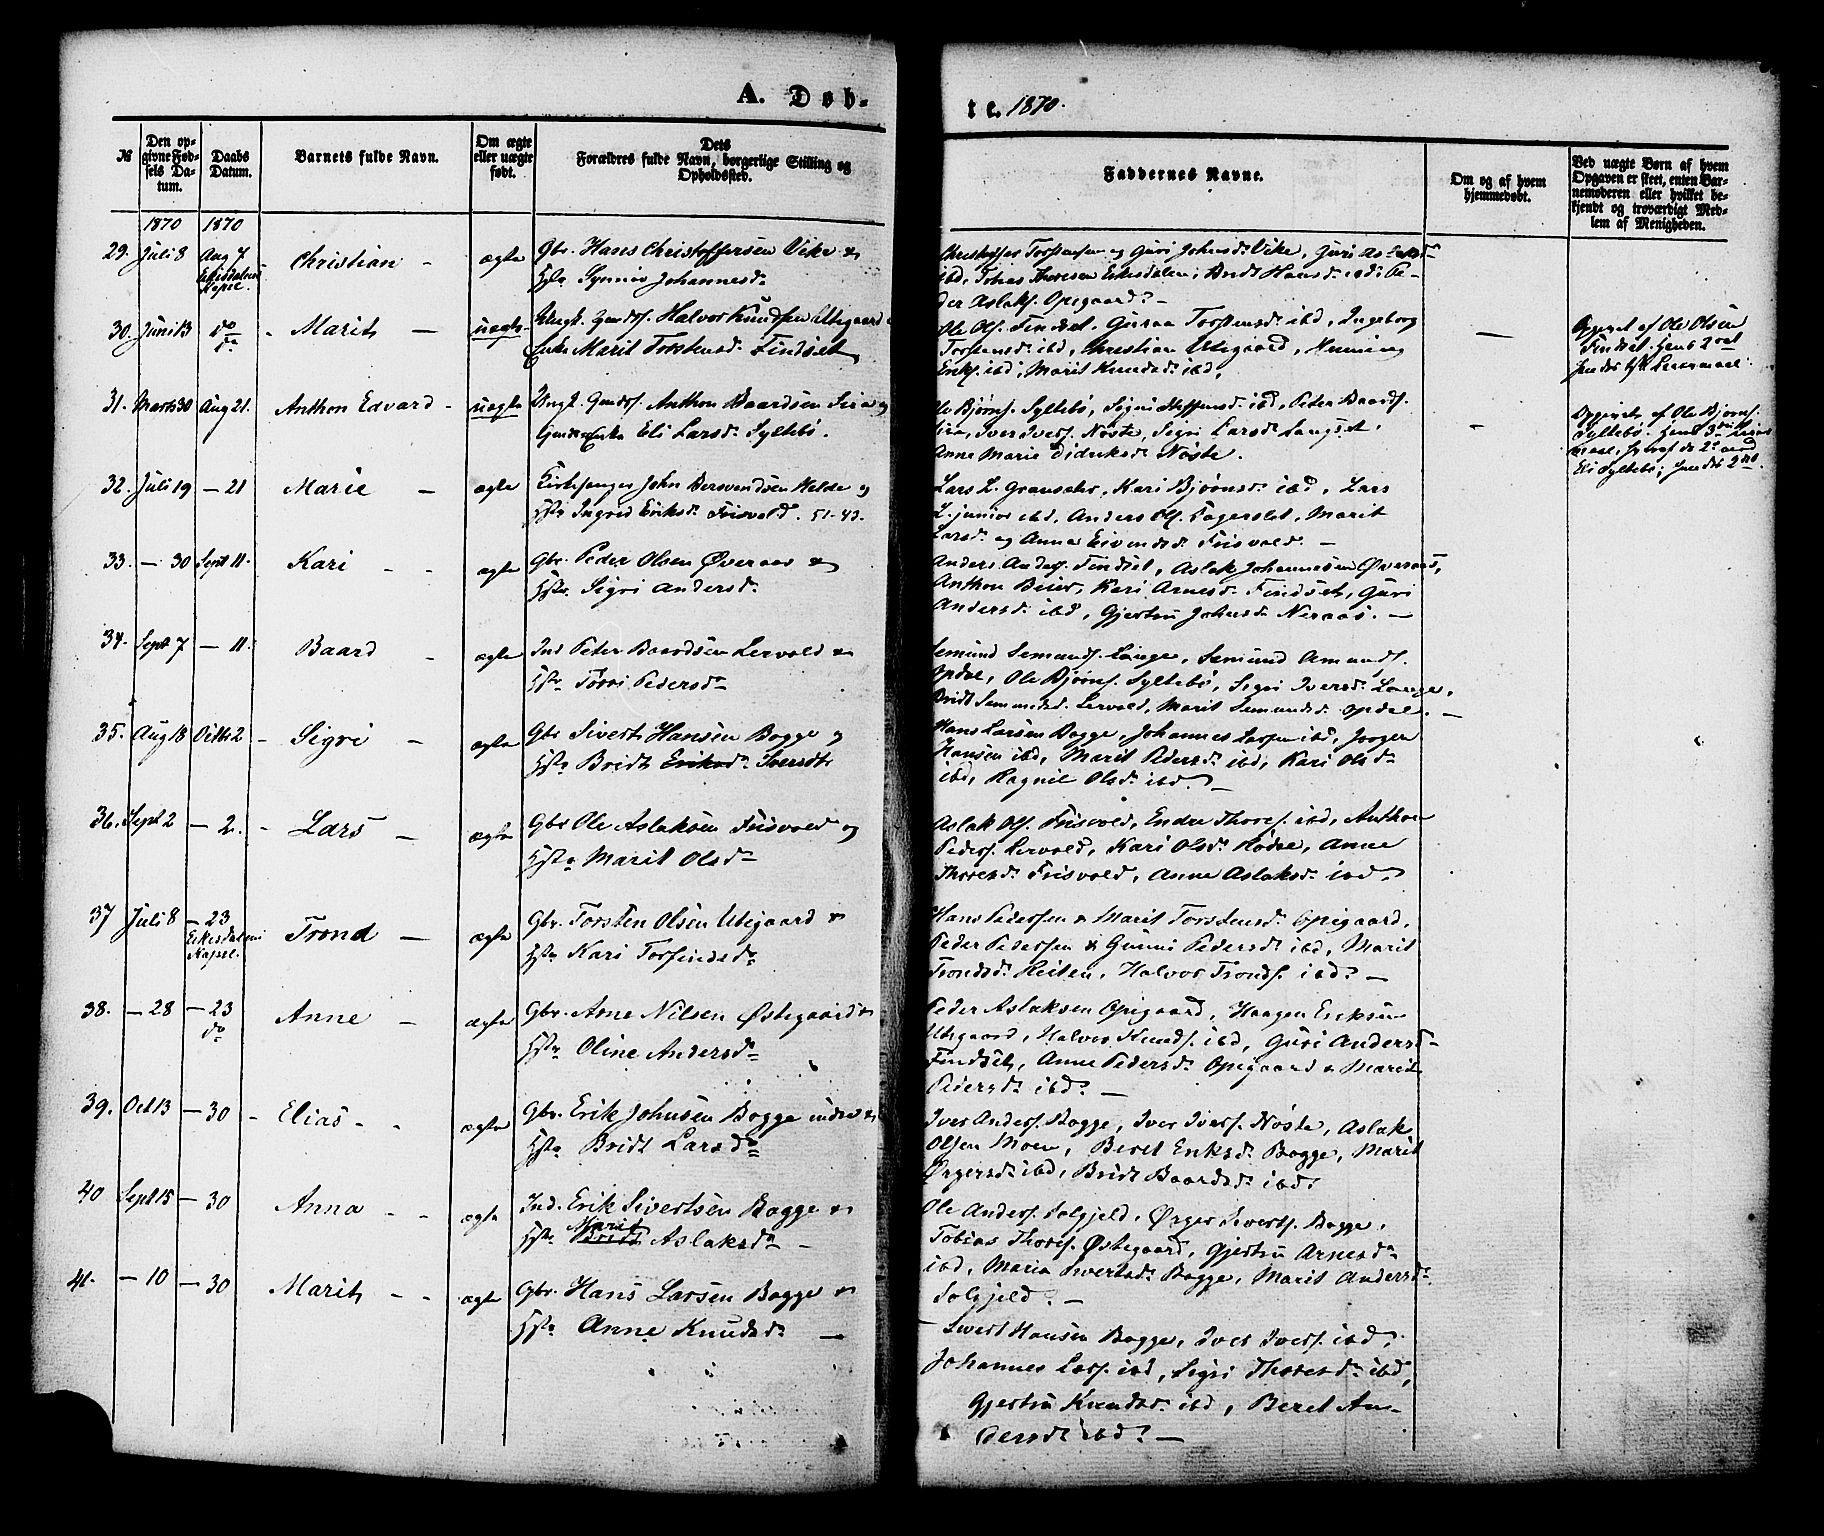 A. Døb-
te. 1870.
№
Den opgivne Fødsels Datum.
Daabs Datum.
Barnets fulde Navn.
Om ægte eller uægte født.
Dets Forældres fulde Navn, borgerlige Stilling og Opholdssted.
Faddernes Navne.
Om og af hvem hjemmedøbt.
Ved uægte Børn af hvem Opgaven er skeet, enten Barnemoderen eller hvilket bekjendt og troværdigt Medlem af Menigheden.
1870 1870
29. Juli 8 Aug 7 Eikisdalens Kapel. Christian - ægte Gbr. Hans Christoffersen Vike &
Hstr Johannesd.
Christoffer Torstensen og Guri Johnsd. Vike, Guri
ibd, Tobias Thoresen Eikisdalen, Brit Hansd. ibd, Pe-
der Aslaks. Opigaard. -
30. Juni 13 do - Marit - uægte Ungk. Halvor Knudsen Utigaard
Enke Marit Torstensd. Findset
Ole Ols. Findset, Guraa Torstensd. ibd, Ingeborg
Torstensd. ibd, Christian Utigaard, Henning
Eriks. ibd, Marit Knudsd. ibd.
-
Opgivet af Ole Olsen
Findset. Hans 2det
hendes 1ste Leiermaal.
31. Marts 30 Aug 21. Anthon Edvard - uægte Ungk. Anthon Baardsen
Enke Eli Larsd. Syltebø.
Ole Bjørns. Syltebø, Sigri Steffensd. ibd, Peter Baards.
Iver Ivers. Nøste, Sigri Larsd. Langset,
Anne Marie Didriksd. Nøste.
-
Opgivet af Ole Bjørns.
Syltebø. Hans 3die Leier
maal,
Eli Syltebø; hendes 2det.
32. Juli 19 - 21 Marie - ægte Kirkesanger John Bersvendsen Helde og
Hstr Ingrid Eriksd. Frisvold. 51-43.
Lars L. Gransæter, Kari Bjørnsd. ibd, Lars
L. junior ibd, Anders Ols. Fagerslet, Marit
Larsd. og Anne Eivendsd. Frisvold. -
33. - 30 Sept 11. Kari - - ægte Gbr. Peder Olsen Øveraas &
Hstr. Sigri Andersd.
Anders Anders. Findset, Aslak Johannesen Øveraas,
Anthon Beier, Kari Arnesd. Findset, Guri
Andersd. ibd, Gjertru Johnsd. Neraas. -
34. Sept 7 - 11. Baard - ægte Ind. Peter Baardsen Lervold &
Hstr Pedersd.
Semund Semunds. Lange, Semund Amunds.
Opdøl, Ole Bjørns. Syltebø, Sigri Iversd. Lange,
Brit Semundsd. Lervold, Marit Semundsd. Opdøl. -
35. Aug 18 Octbr 2 - Sigri - ægte Gbr Sivert Hansen Bogge og
Hstr Bridt Eriksd. Sverdt
Hans Larsen Bogge, Johannes Larsen ibd, Jørgen
Hansen ibd, Marit Pedersd. ibd, Kari Olsd.
ibd, Ragnil Olsd. ibd. -
36. Sept 2 - 2. - Lars - ægte Gbr Ole Aslaksen Frisvold og
Hstr Marit Olsd.
Aslak Ols. Frisvold, Endre Thores. ibd, Anthon
Peders. Lervold, Kari Olsd. Hødre, Anne
Thoresd. Frisvold, Anne Aslaksd. ibd.
37 Juli 8 - 23 Eikisdalens Kapel. Trond - ægte Gbr. Torsten Olsen Utigaard &
Hstr Kari Torfindsd.
Hans Pedersen & Marit Torstensd. Opigaard,
Peder Pedersen & Gunni Pedersd. ibd, Marit
Trondsd. Reiten, Halvor Tronds. ibd. -
38. - 28 - 23 do Anne - ægte Gbr. Arne Nilsen Østigaard &
Hstr Oline Andersd.
Peder Aslaksen Opigaard, Haagen Eriksen
Utigaard, Halvor Knuds. ibd, Guri Andersd.
Findset, Anne Pedersd. Opigaard & Marit
Pedersd. ibd. -
39. Oct 13 - 30 - Elias - - ægte Gbr. Erik Johnsen Bogge indre &
Hstr Bridt Larsd.
Iver Anders. Bogge, Iver Ivers. Nøste, Aslak
Olsen Moen, Beret Eriksd. Bogge, Marit
Ørgersd. ibd, Bridt Baardsd. ibd.
40 Sept 15 - 30 Anna - - ægte Ind. Erik Sivertsen Bogge &
Hstr Marit Bridt Aslaksd. -
Ole Anders. Solgjeld, Ørger Siverts. Bogge,
Tobias Thores. Østigaard, Gjertru Arnesd.
ibd, Maria Sivertsd. Bogge, Marit Andersd.
Solgjeld. -
41. - 10 - 30 Marit - - ægte Gbr. Hans Larsen Bogge &
Hstr Anne Knudsd. -
Sivert Hansen Bogge, Iver Ivers. ibd,
Johannes Lars. ibd, Sigri Thoresd. ibd,
Gjertru Knudsd. ibd, Beret An-
dersd. ibd. -